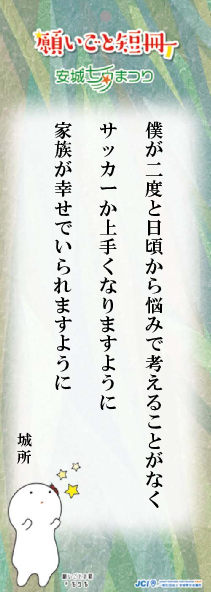 願いごと短冊
安城七夕まつり
僕が二度と日頃から悩みで考えることがなく
サッカーか上手くなりますように
家族が幸せでいられますように
城所
JCI